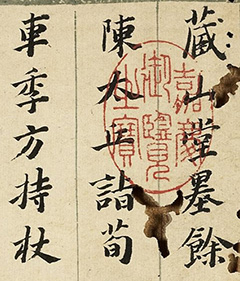 藏山墨餘
陳太丘詣荀
車季方持杖
嘉慶
御覽
之寶